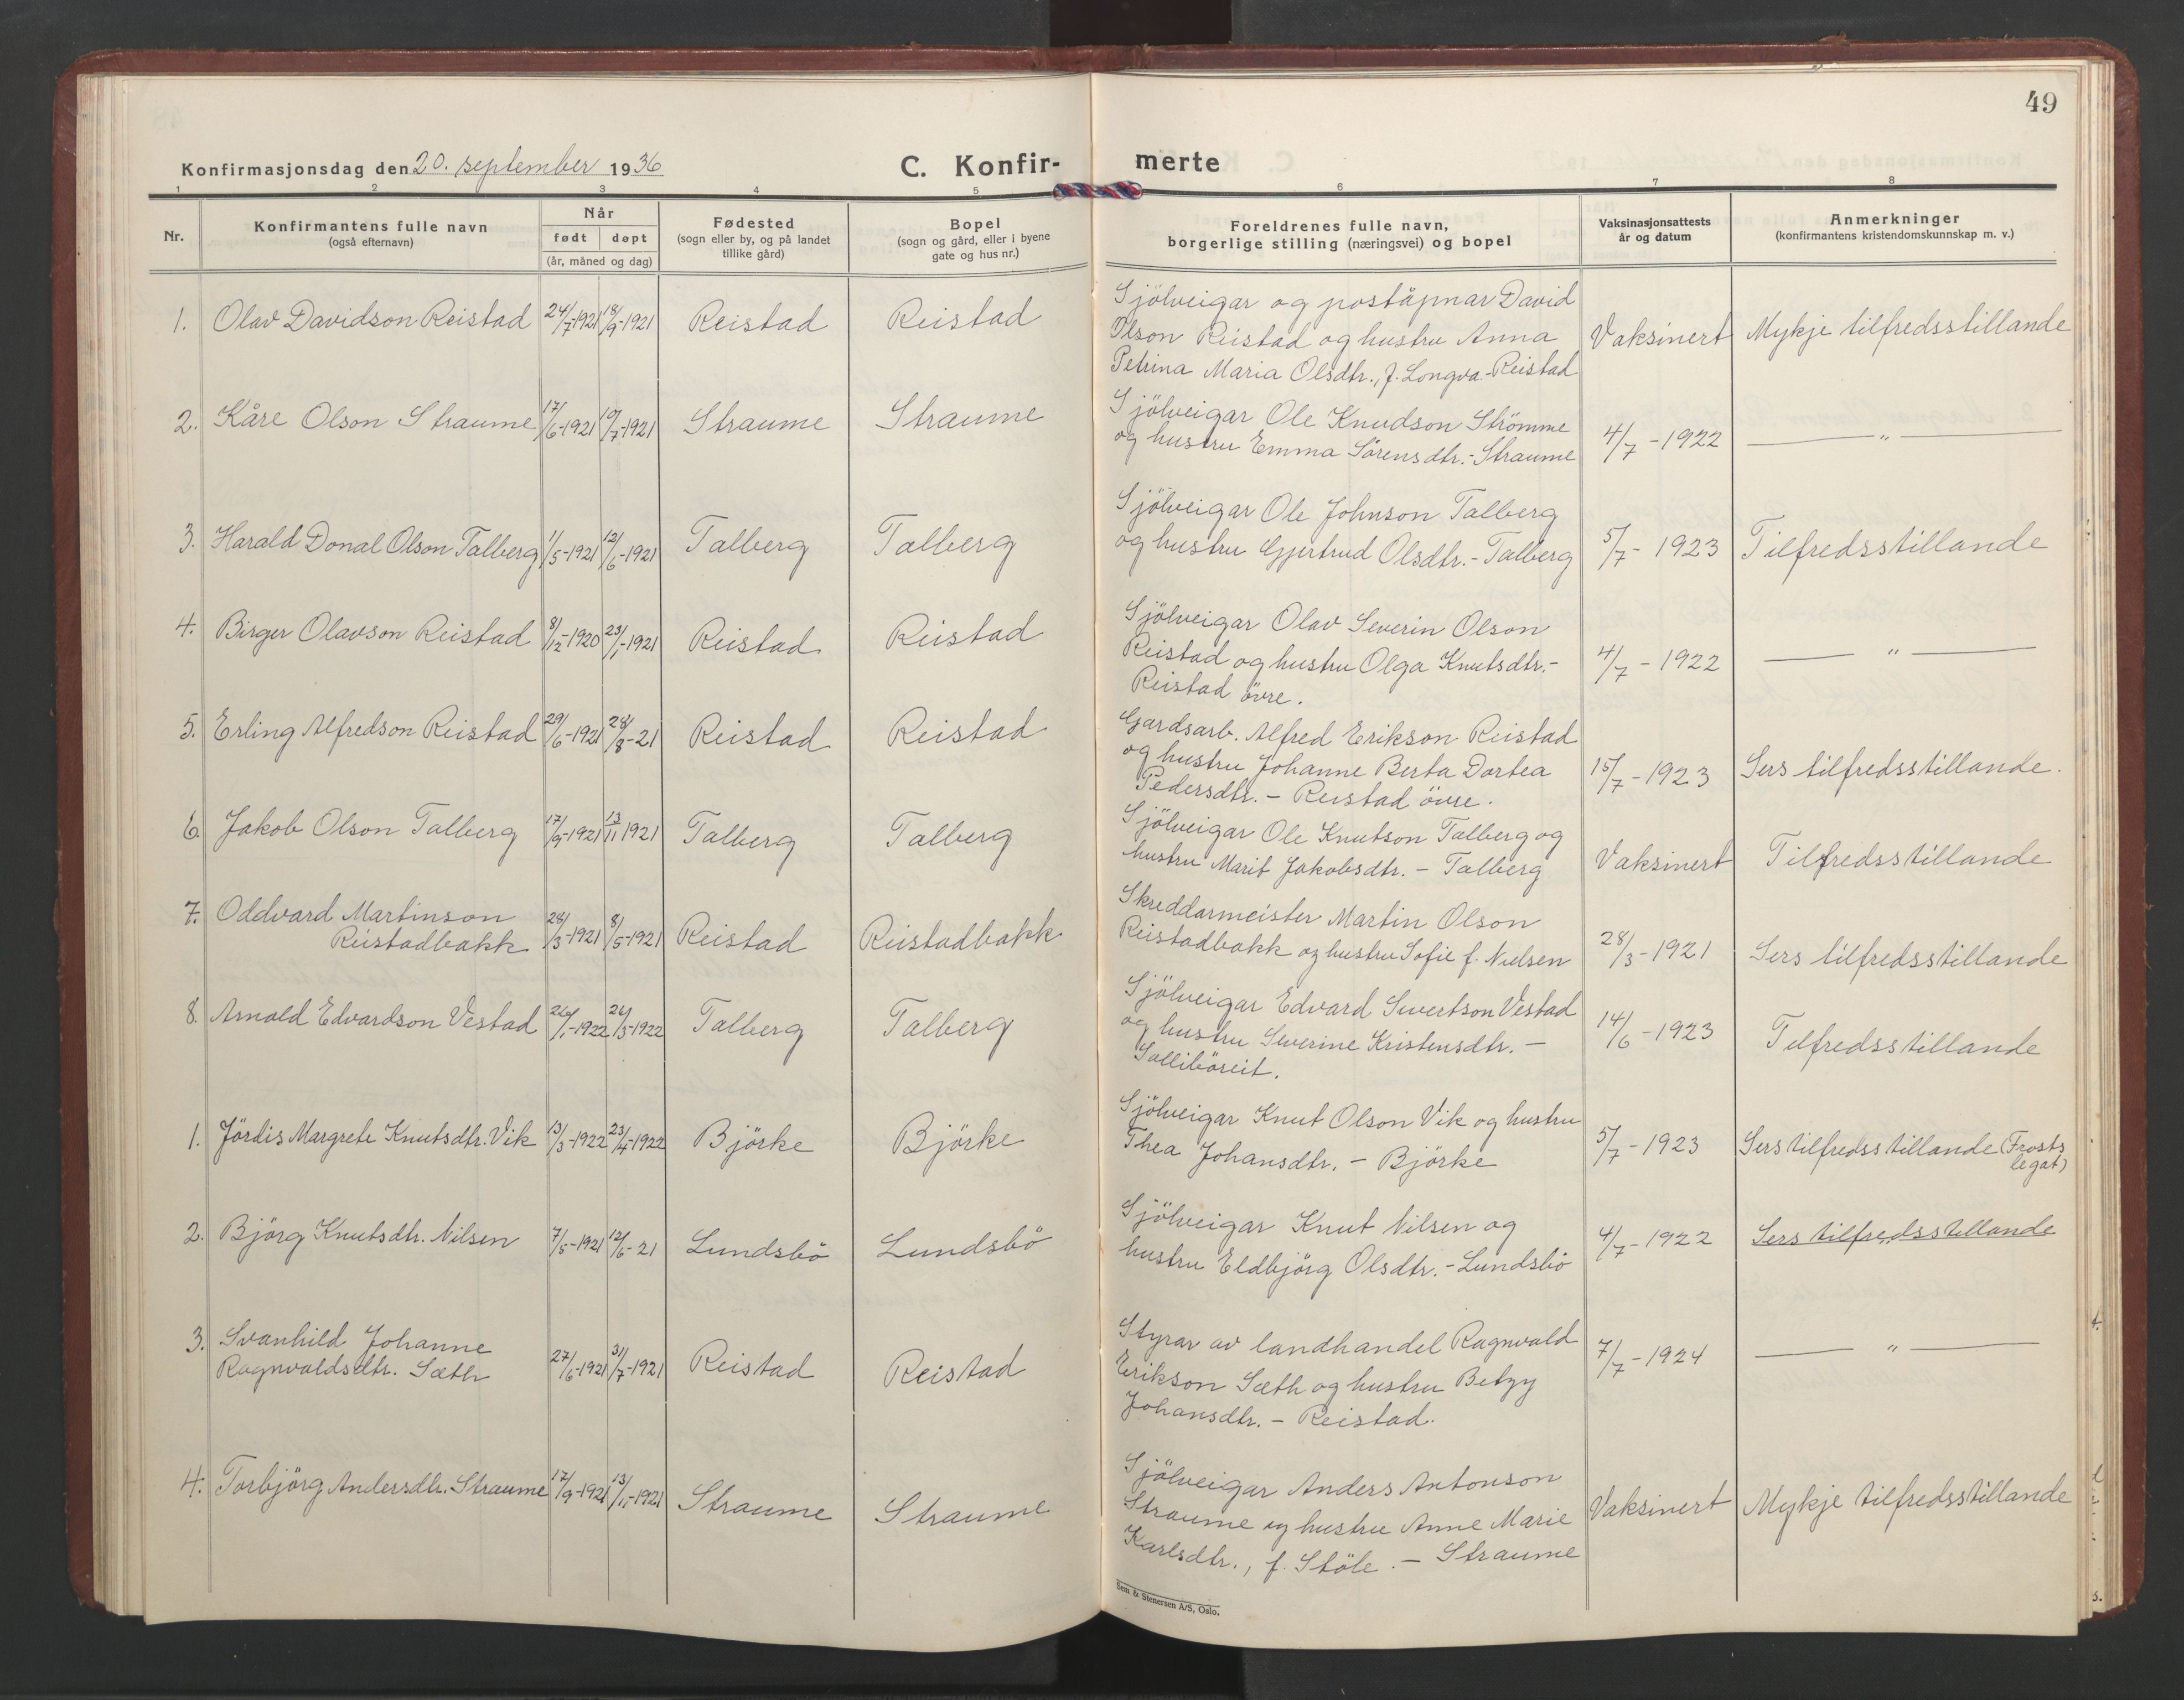 49
Konfirmasjonsdag den 20. september 1936
C. Konfir-
merte
1 2 3 4 5 6 7 8
Nr.
Konfirmantens fulle navn
(også efternavn)
Når
født døpt
(år, måned og dag)
Fødested
(sogn eller by, og på landet
tillike gård)
Bopel
(sogn og gård, eller i byene
gate og hus nr.)
Foreldrenes fulle navn,
borgerlige stilling (næringsvei) og bopel
Vaksinasjonsattests
år og datum
Anmerkninger
(konfirmantens kristendomskunnskap m. v.)
1. Olav Davidson Reistad 24/7-1921 18/9-1921 Reistad Reistad
Sjölveigar og poståpnar David
Olson Reistad og hustru Anna
Petrina Maria Olsdtr., f. Longva - Reistad
Vaksinert Mykje tilfredsstillande
2. Kåre Olson Straume 17/6-1921 10/7-1921 Straume Straume
Sjölveigar Ole Knudson Strömme
og hustru Emma Sörensdtr. - Straume
4/7 - 1922 — " —
3. Harald Donal Olson Talberg 1/5-1921 12/6-1921 Talberg Talberg
Sjölveigar Ole Johnson Talberg
og hustru Gjertrud Olsdtr. - Talberg
5/7 - 1923 Tilfredsstillande
4. Birger Olavson Reistad 8/12-1920 23/1-1921 Reistad Reistad
Sjölveigar Olav Severin Olson
Reistad og hustru Olga Knutsdtr. -
Reistad övre.
4/7 - 1922 — " —
5. Erling Alfredson Reistad 29/6-1921 28/8-21 Reistad Reistad
Gardsarb. Alfred Erikson Reistad
og hustru Johanne Berta Dortea
Pedersdtr. - Reistad övre.
15/7 - 1923 Sers tilfredsstillande.
6. Jakob Olson Talberg 17/9-1921 13/11 1921 Talberg Talberg
Sjölveigar Ole Knutson Talberg og
hustru Marit Jakobsdtr. - Talberg
Vaksinert Tilfredsstillande
7. Oddvard Martinson
Reistadbakk 28/3-1921 8/5-1921 Reistad Reistadbakk
Skreddarmeister Martin Olson
Reistadbakk og hustru Sofie f. Nielsen
28/3 - 1921 Sers tilfredsstillande
8. Arnold Edvardson Vestad 26/1-1922 26/3-1922 Talberg Talberg
Sjölveigar Edvard Sivertson Vestad
og hustru Severine Kristensdtr. -
14/6 - 1923 Tilfredsstillande
1. Jördis Margrete Knutsdtr. Vik 13/3-1922 23/4-1922 Björke Björke
Sjölveigar Knut Olson Vik og hustru
Thea Johansdtr. - Björke
5/7 - 1923 Sers tilfredsstillande (Frosts
legat)
2. Björg Knutsdtr. Nilsen 7/5-1921 12/6-21 Lundsbö Lundsbö
Sjölveigar Knut Nilsen og
hustru Eldbjörg Olsdtr. - Lundsbö
4/7 - 1922 Sers tilfredsstillande
3. Svanhild Johanne
Ragnvaldsdtr. Sæth 27/6-1921 31/7-1921 Reistad Reistad
Styrar av landhandel Ragnvald
Erikson Sæth og hustru Betzy
Johansdtr. - Reistad.
7/7 - 1924 — " —
4. Torbjörg Andersdtr. Straume 17/9-1921 13/11-1921 Straume Straume
Sjölveigar Anders Antonson
Straume og hustru Anne Marie
Karlsdtr., f. Støle. - Straume
Vaksinert Mykje tilfredsstillande
Sem & Stenersen A/S, Oslo.